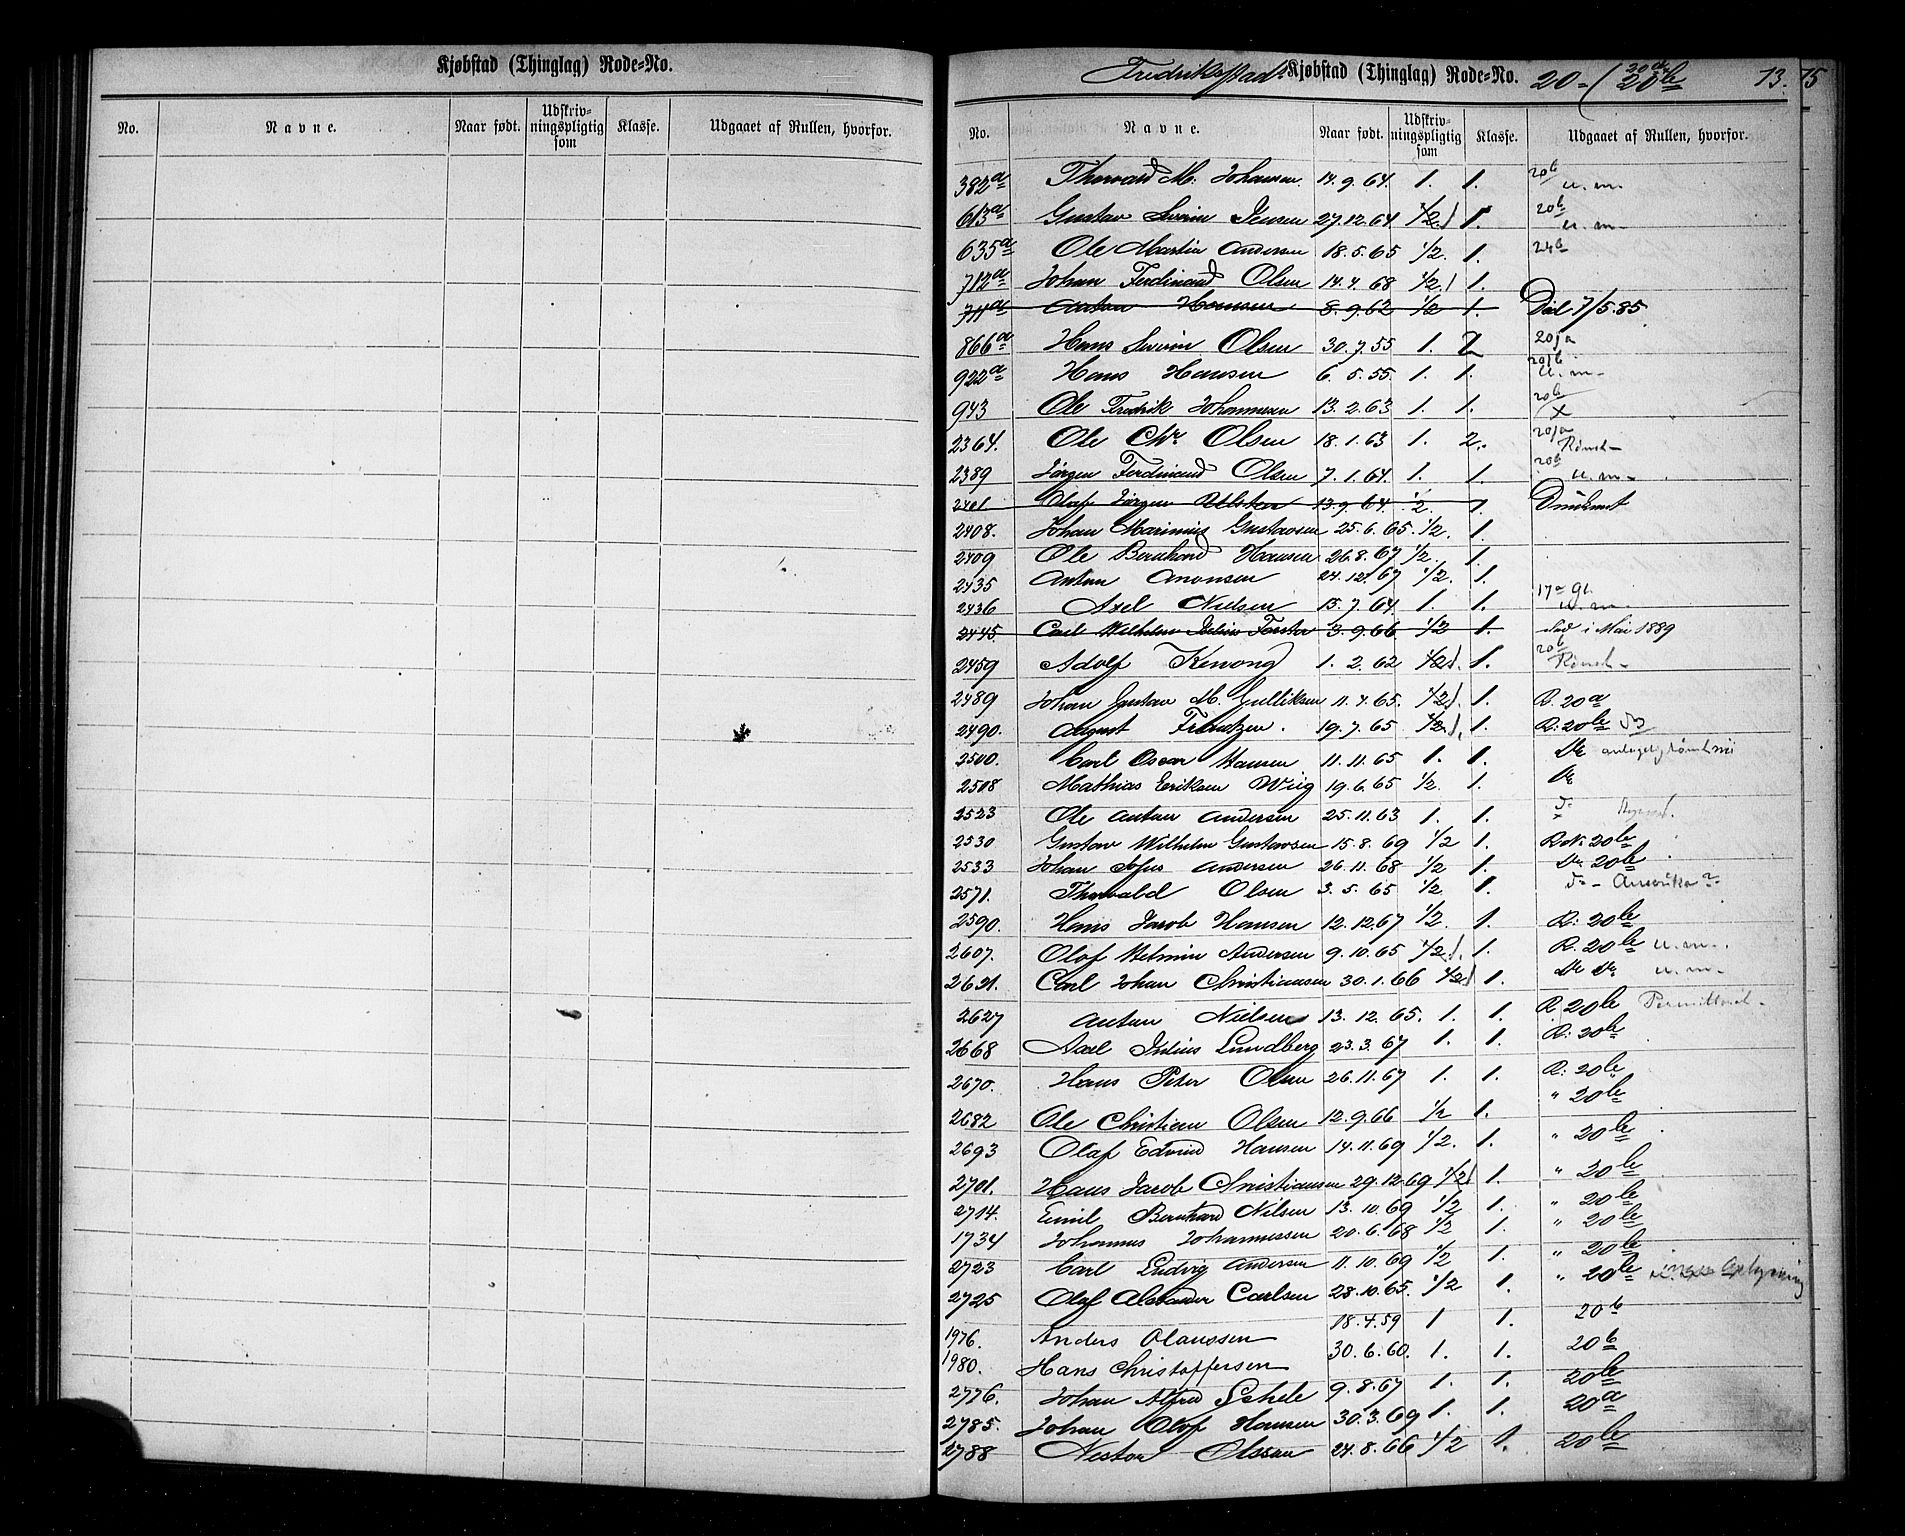 Kjøbstad (Thinglag) Rode-No.
No. Navne. Naar født. Udskriv-ningspligtig som Klasse. Udgaaet af Rullen, hvorfor.
Fredriksstads Kjøbstad (Thinglag) Rode-No. 20 - (20a 20b 13. 15
No. Navne. Naar født. Udskriv-ningspligtig som Klasse. Udgaaet af Rullen, hvorfor.
382a Thorvard M. Johansen 14.9.64. 1. 1. 20b u. m.
613a Gustav Severin Jensen 27.12.64 1/2) 1. 20b u. m.
635a Ole Martin Andersen 18.5.65 1/2. 1. 24b
712a Johan Ferdinand Olsen 14.4.68 1/2) 1.
711a Anton Hansen 8.9.62 1/2 1. Død 7/5.85
866a Hans Severin Olsen 30.7.55 1. 2 20/a
922a Hans Hansen 6.5.55. 1. 1. 20/b u. m.
943 Ole Fredrik Johannesen 13.2.63 1. 1. 20b x
2364. Ole Chr. Olsen 18.1.63 1. 2. 20/a Rømt
2389 Jørgen Ferdinand Olsen 7.1.64. 1. 1. 20b u. m.
2401 Olaf Jørgen 13.9.64. 1/2. 1.
2408. Johan Marinius Gustavsen 25.6.65. 1/2. 1.
2409 Ole Bernhard Hansen 26.8.67 1/2. 1.
2435 Anton Aronsen 24.12.67 1/2. 1.
2436 Axel Nielsen 15.7.64 1. 1. 17a u. m.
2445. Carl Wilhelm Julius 3.9.66 1/2 1. død i Mai 1889
2459 Adolf 1.2.62 1/2). 1. 20b Rømt
2489 Johan Gustav M. Gulliksen 11.4.65. 1/2). 1. R. 20a
2490. August Frantzen. 19.7.65 1/2). 1. R. 20b
2500. Carl Oscar Hansen 11.11.65 1. 1. Do
2508 Mathias Eriksen Wiig 19.6.65 1/2. 1. Do
2523 Ole Anton Andersen 25.11.63 1. 1. do
2530 Gustav Wilhelm Gustavsen 15.8.69 1/2 1. R.N. 20b
2533 Johan Sofus Andersen 26.11.68 1/2 1. Do 20b
2571. Thorvald Olsen 3.5.65 1/2 1. do - Amerika?
2590. Hans Jacob Hansen 12.12.67 1/2. 1. R: 20b
2607. Olof Andersen 9.10.65 1/2). 1. R. 20b u. m.
2621. Carl Johan Christiansen 30.1.66 1/2) 1. Do Do u. m.
2627 Anton Nielsen 13.12.65. 1. 1. R 20b
2668 Axel Julius Lundberg 23.3.67 1. 1. R: 20b
2670. Hans Peter Olsen 26.11.67 1. 1. R: 20b
2682 Ole Christian Olsen 12.9.66 1/2 1. " 20b
2693 Olaf Edvind Hansen 14.11.69 1/2. 1. " 20b
2701. Hans Jacob Christiansen 29.12.69 1/2) 1. " 20b
2714. Emil Bernhard Nilsen 13.10.69 1/2 1. " 20b
1734 Johannes Johannessen 20.6.68 1/2 1. " 20b
2723 Carl Ludvig Andersen 11.10.69 1/2 1. " 20b
2725 Olaf Alexander Carlsen 28.10.65. 1/2 1. " 20b Oplysning
1976. Anders Olaussen 18.4.59 1 1. 20b
1980. Hans Christoffersen 30.6.60. 1. 1. 20b
2776. Johan Alfred Schele 9.8.67 1. 1. 20b
2785. Johan Olof Hansen 30.3.69 1. 1. 20a
2788 Nestor Olssen 24.8.66 1/2 1. 20b